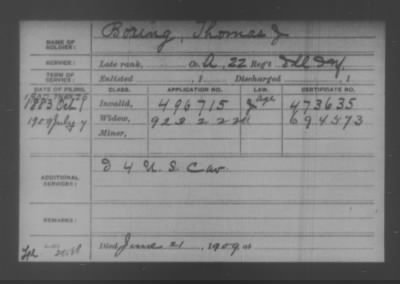 NAME OF SOLDIER: Boring, Thomas J
SERVICE: Late rank, Co. A, 22 Reg't Ill Inf.
TERM OF SERVICE: Enlisted , 1 Discharged , 1
DATE OF FILING. CLASS. APPLICATION NO. LAW. CERTIFICATE NO.
1883 Oct Invalid, 496715 473635
1909 July 7 Widow, 923222 694573
Minor,
ADDITIONAL SERVICES: D 4 U. S. Cav.
REMARKS:
Died June 21, 1909 at